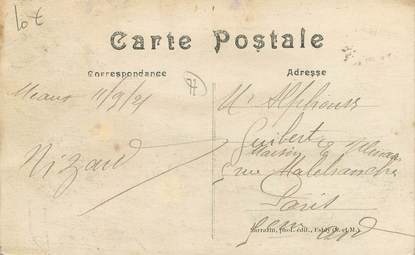 10 €
Carte Postale
Correspondance
Adresse
Meaux 11/9/21
Nizard
Mr Alphonse
Guibert
Maison
rue Malebranche
Paris
Sarrazin, phot. édit., Esbly (S.-et-M.)